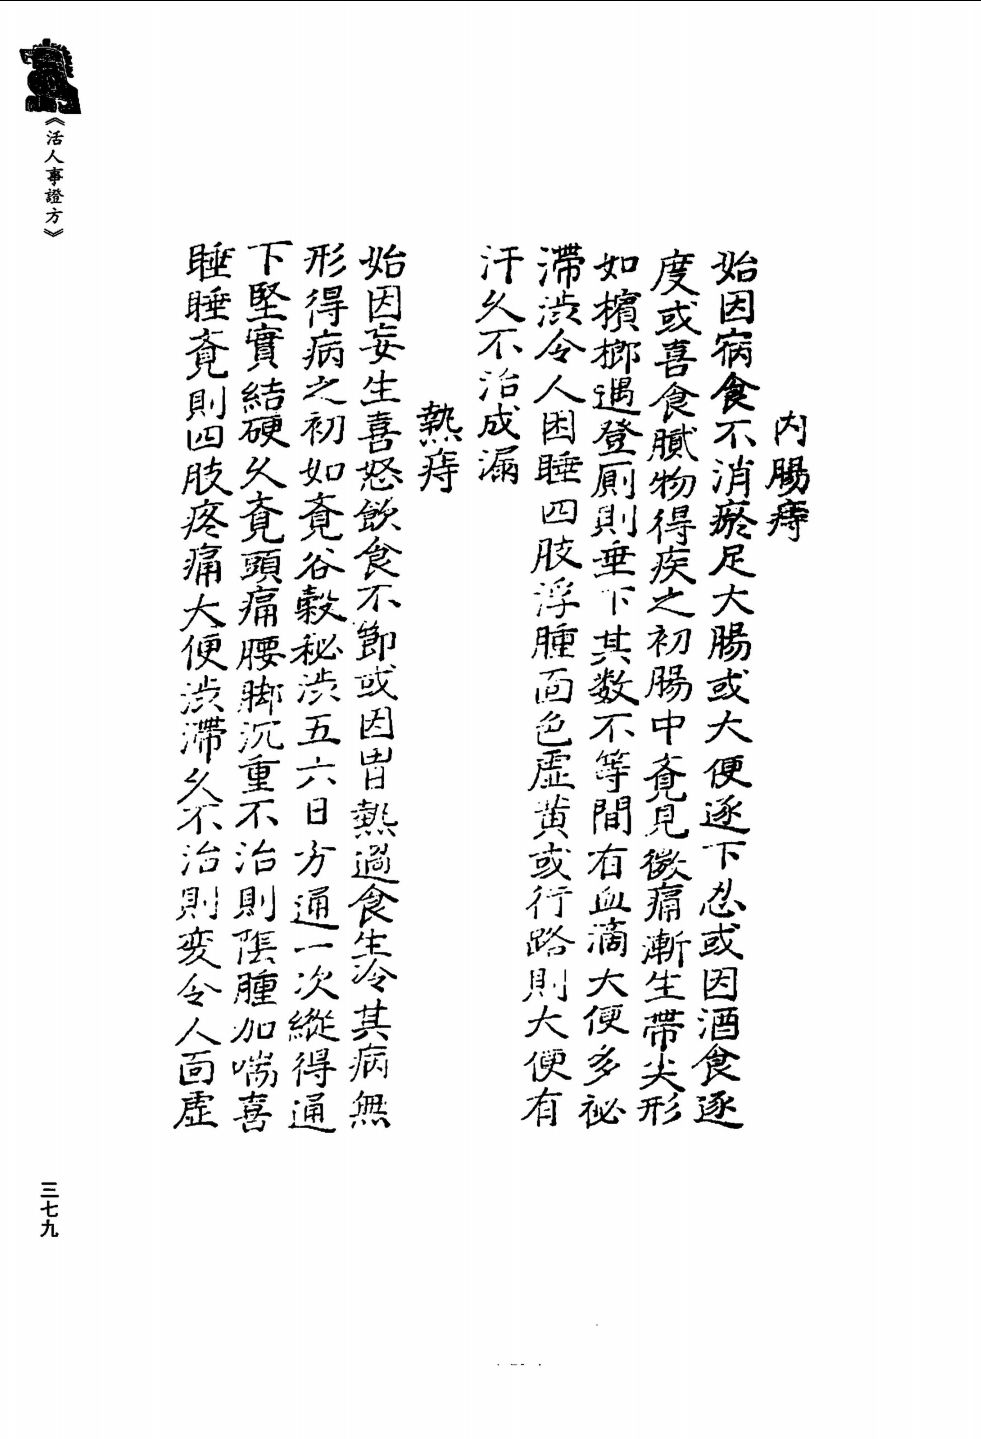 內腸痔
始因病食不消瘀足大腸或大便逐下忍或因酒食逐
度或喜食膩物得疾之初腸中覔見微痛漸生帶尖形
如檳榔遇登厠則垂下其数不等間有血滴大便多祕
滯渋令人困睡四肢浮腫面色虛黃或行路則大便有
汗久不治成漏
熱痔
始因妄生喜怒飲食不節或因冒熱過食生冷其病無
形得病之初如覔谷穀秘渋五六日方通一次縱得通
下堅實結硬久覔頭痛腰脚沉重不治則陰腫加喘喜
睡睡覔則四肢疼痛大便渋滯久不治則変令人面虛
《活人事證方》
三七九